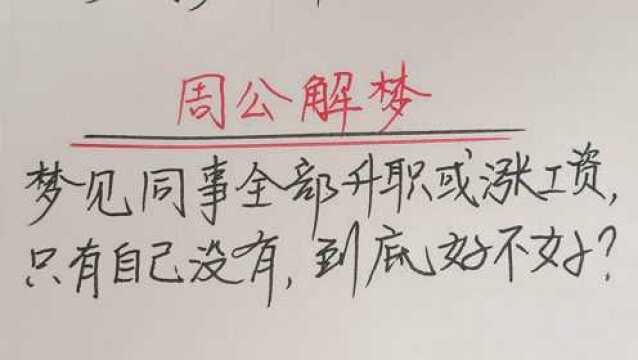 周公解梦
梦见同事全部升职或涨工资,
只有自己没有,到底好不好?